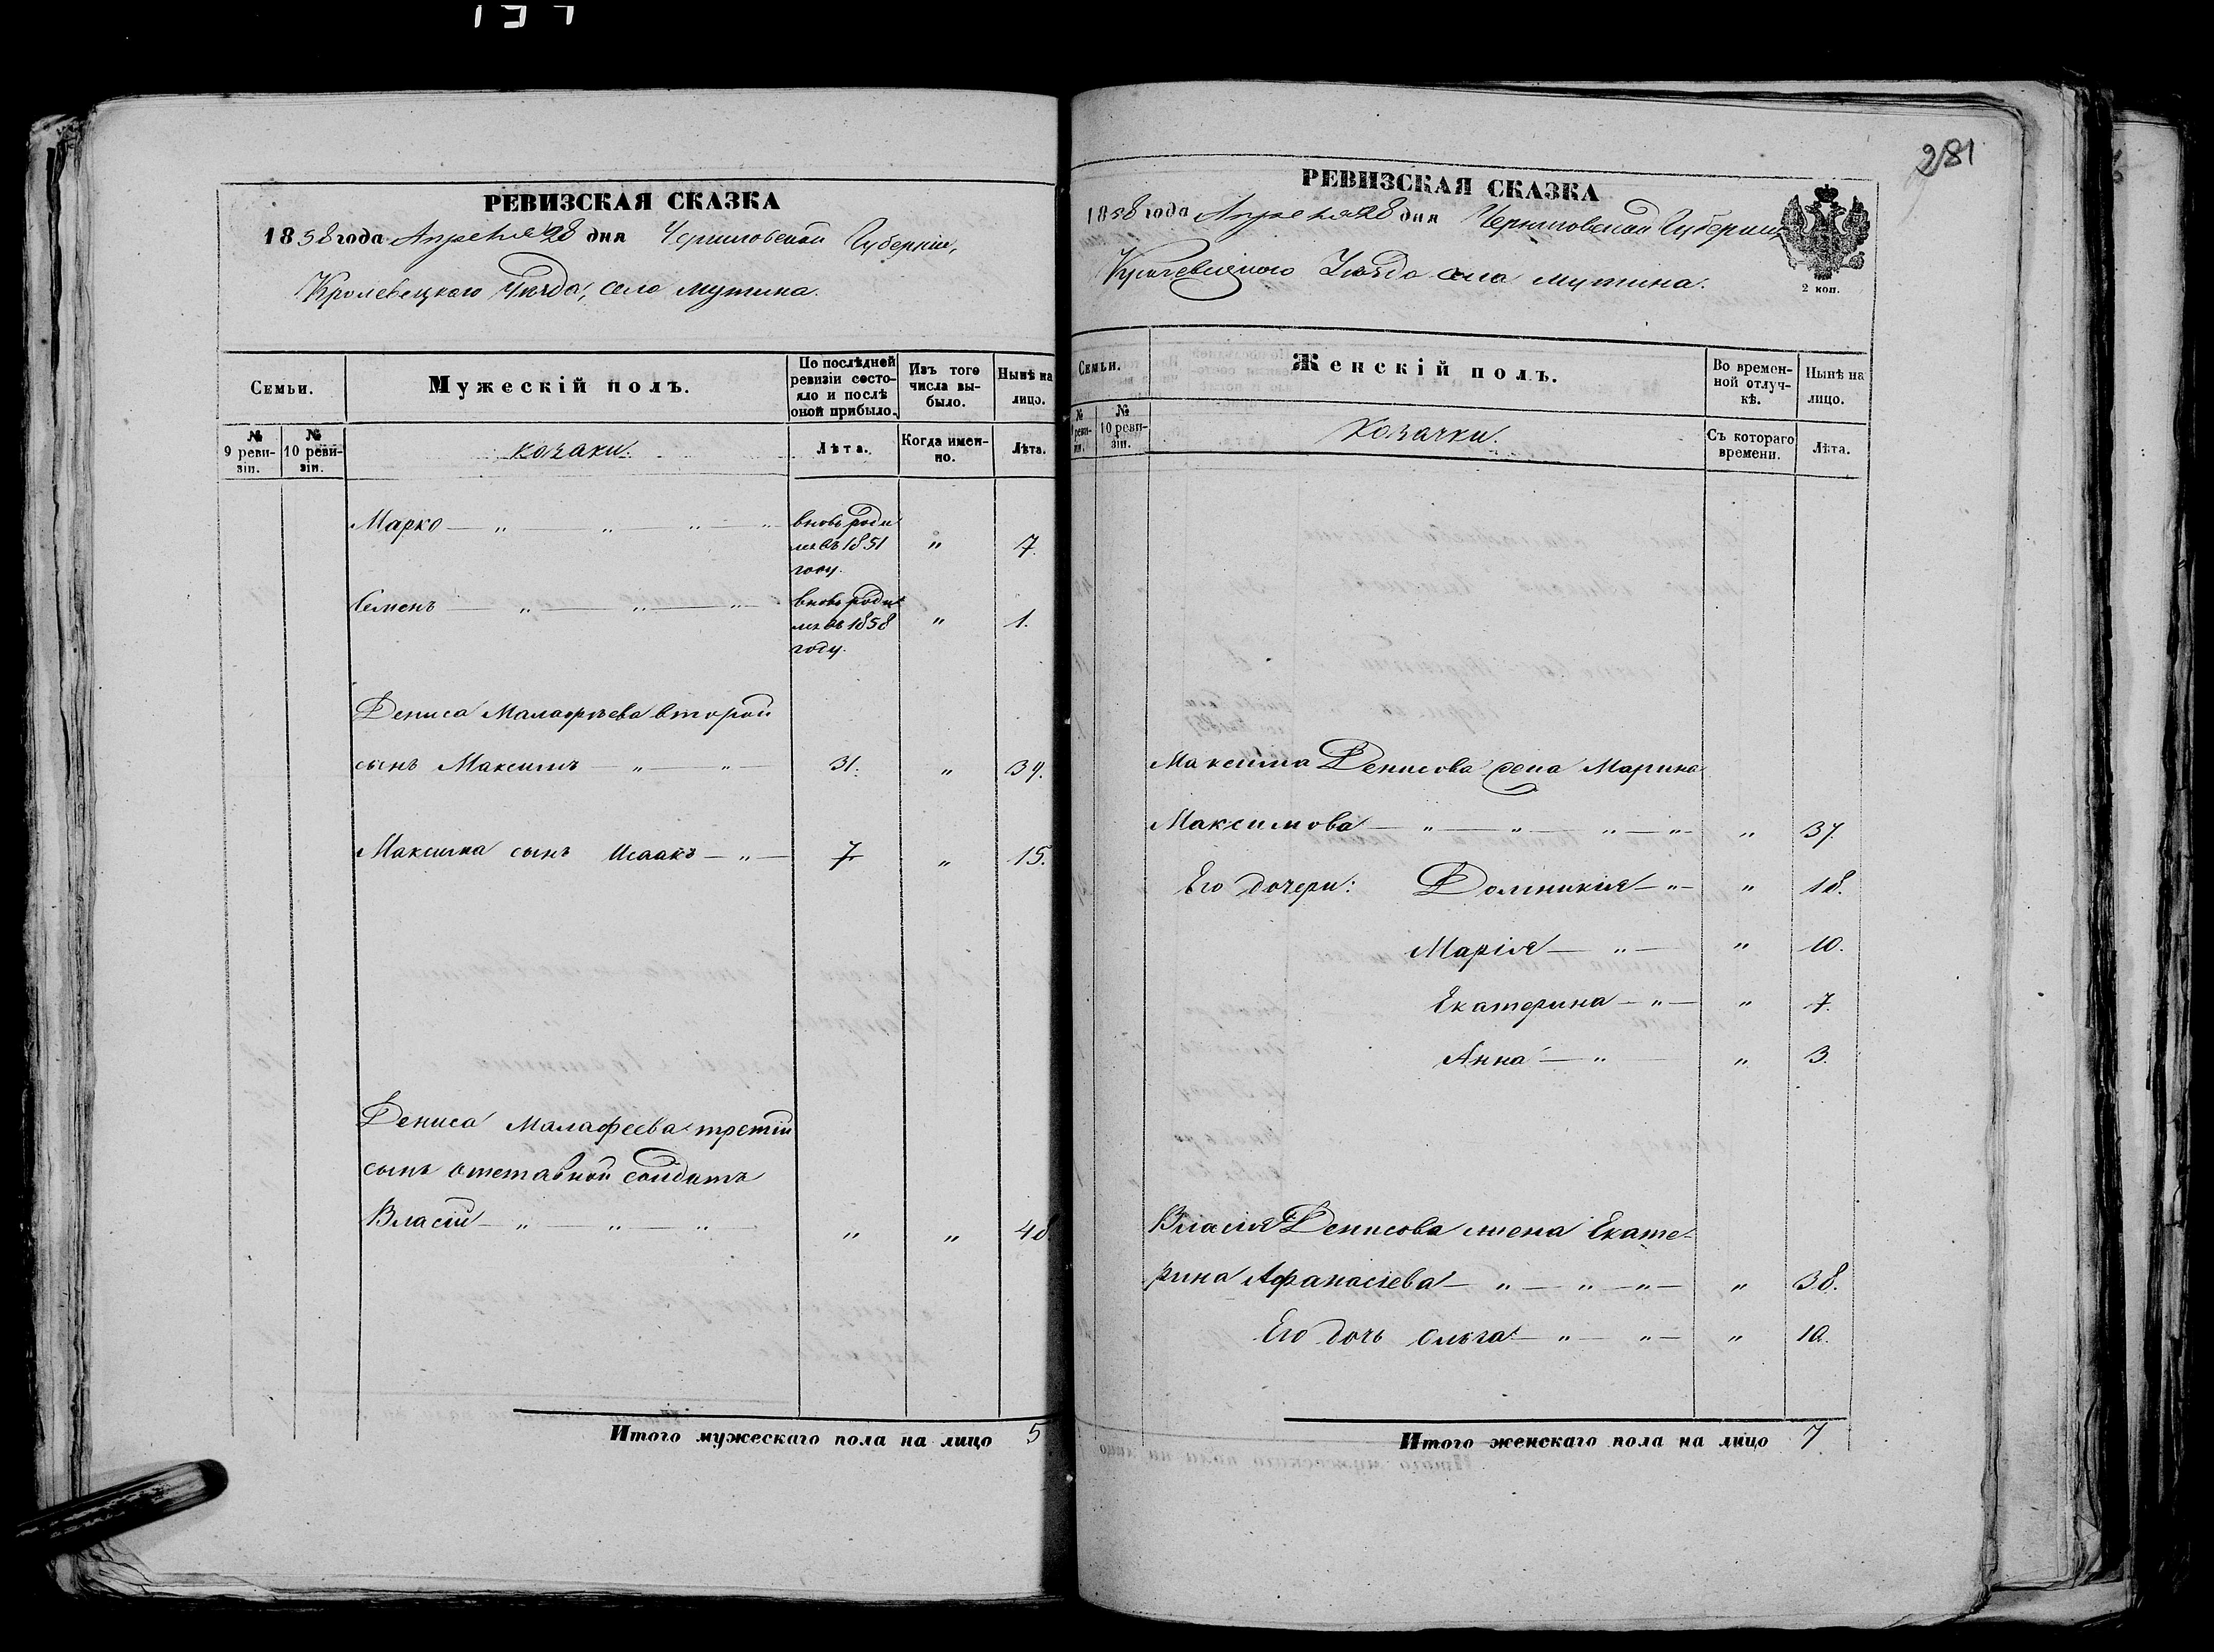 281
РЕВИЗСКАЯ СКАЗКА
1858 года Апреля 28 дня Черниговской Губерніи,
Кролевецкаго Уезда, село Мутина.
Семьи.
Мужескій полъ.
По послѣдней ревизіи состояло и послѣ оной прибыло.
Изъ того числа выбыло.
Нынѣ на лицо.
№ 9 ревизіи.
№ 10 ревизіи.
козаки.
Лѣта.
Когда именно.
Лѣта.
Марко — „ — „ — „ — „ вновь роди
лся въ 1851 „ 7.
году.
Семенъ — „ — „ — „ — вновь роди
лся въ 1858 „ 1.
году.
Дениса Малафѣева второй
сынъ Максимъ — „ — „ — 31. „ 39.
Максима сынъ Исаакъ — „ — 7 „ 15.
Дениса Малафеева третій
сынъ отставной солдатъ
Власій — „ — „ — „ — „ „ 48.
Итого мужескаго пола на лицо 5
РЕВИЗСКАЯ СКАЗКА
1858 года Апреля 28 дня Черниговской Губерніи
Кролевецкого Уезда села Мутина.
2 коп.
Семьи.
Женскій полъ.
Во временной отлучкѣ.
Нынѣ на лицо.
№ ревизіи.
№ 10 ревизіи.
Козачки.
Съ котораго времени.
Лѣта.
Максима Денисова жена Марина
Максимова — „ — „ — „ — „ — „ 37.
Его дочери: Домникія — „ — „ 18.
Марія — „ — „ 10.
Екатерина — „ — „ 7.
Анна — „ — „ 3.
Власія Денисова жена Екате-
рина Афанасіева — „ — „ — „ — „ 38.
Его дочь Ольга — „ — „ — „ 10.
Итого женскаго пола на лицо 7